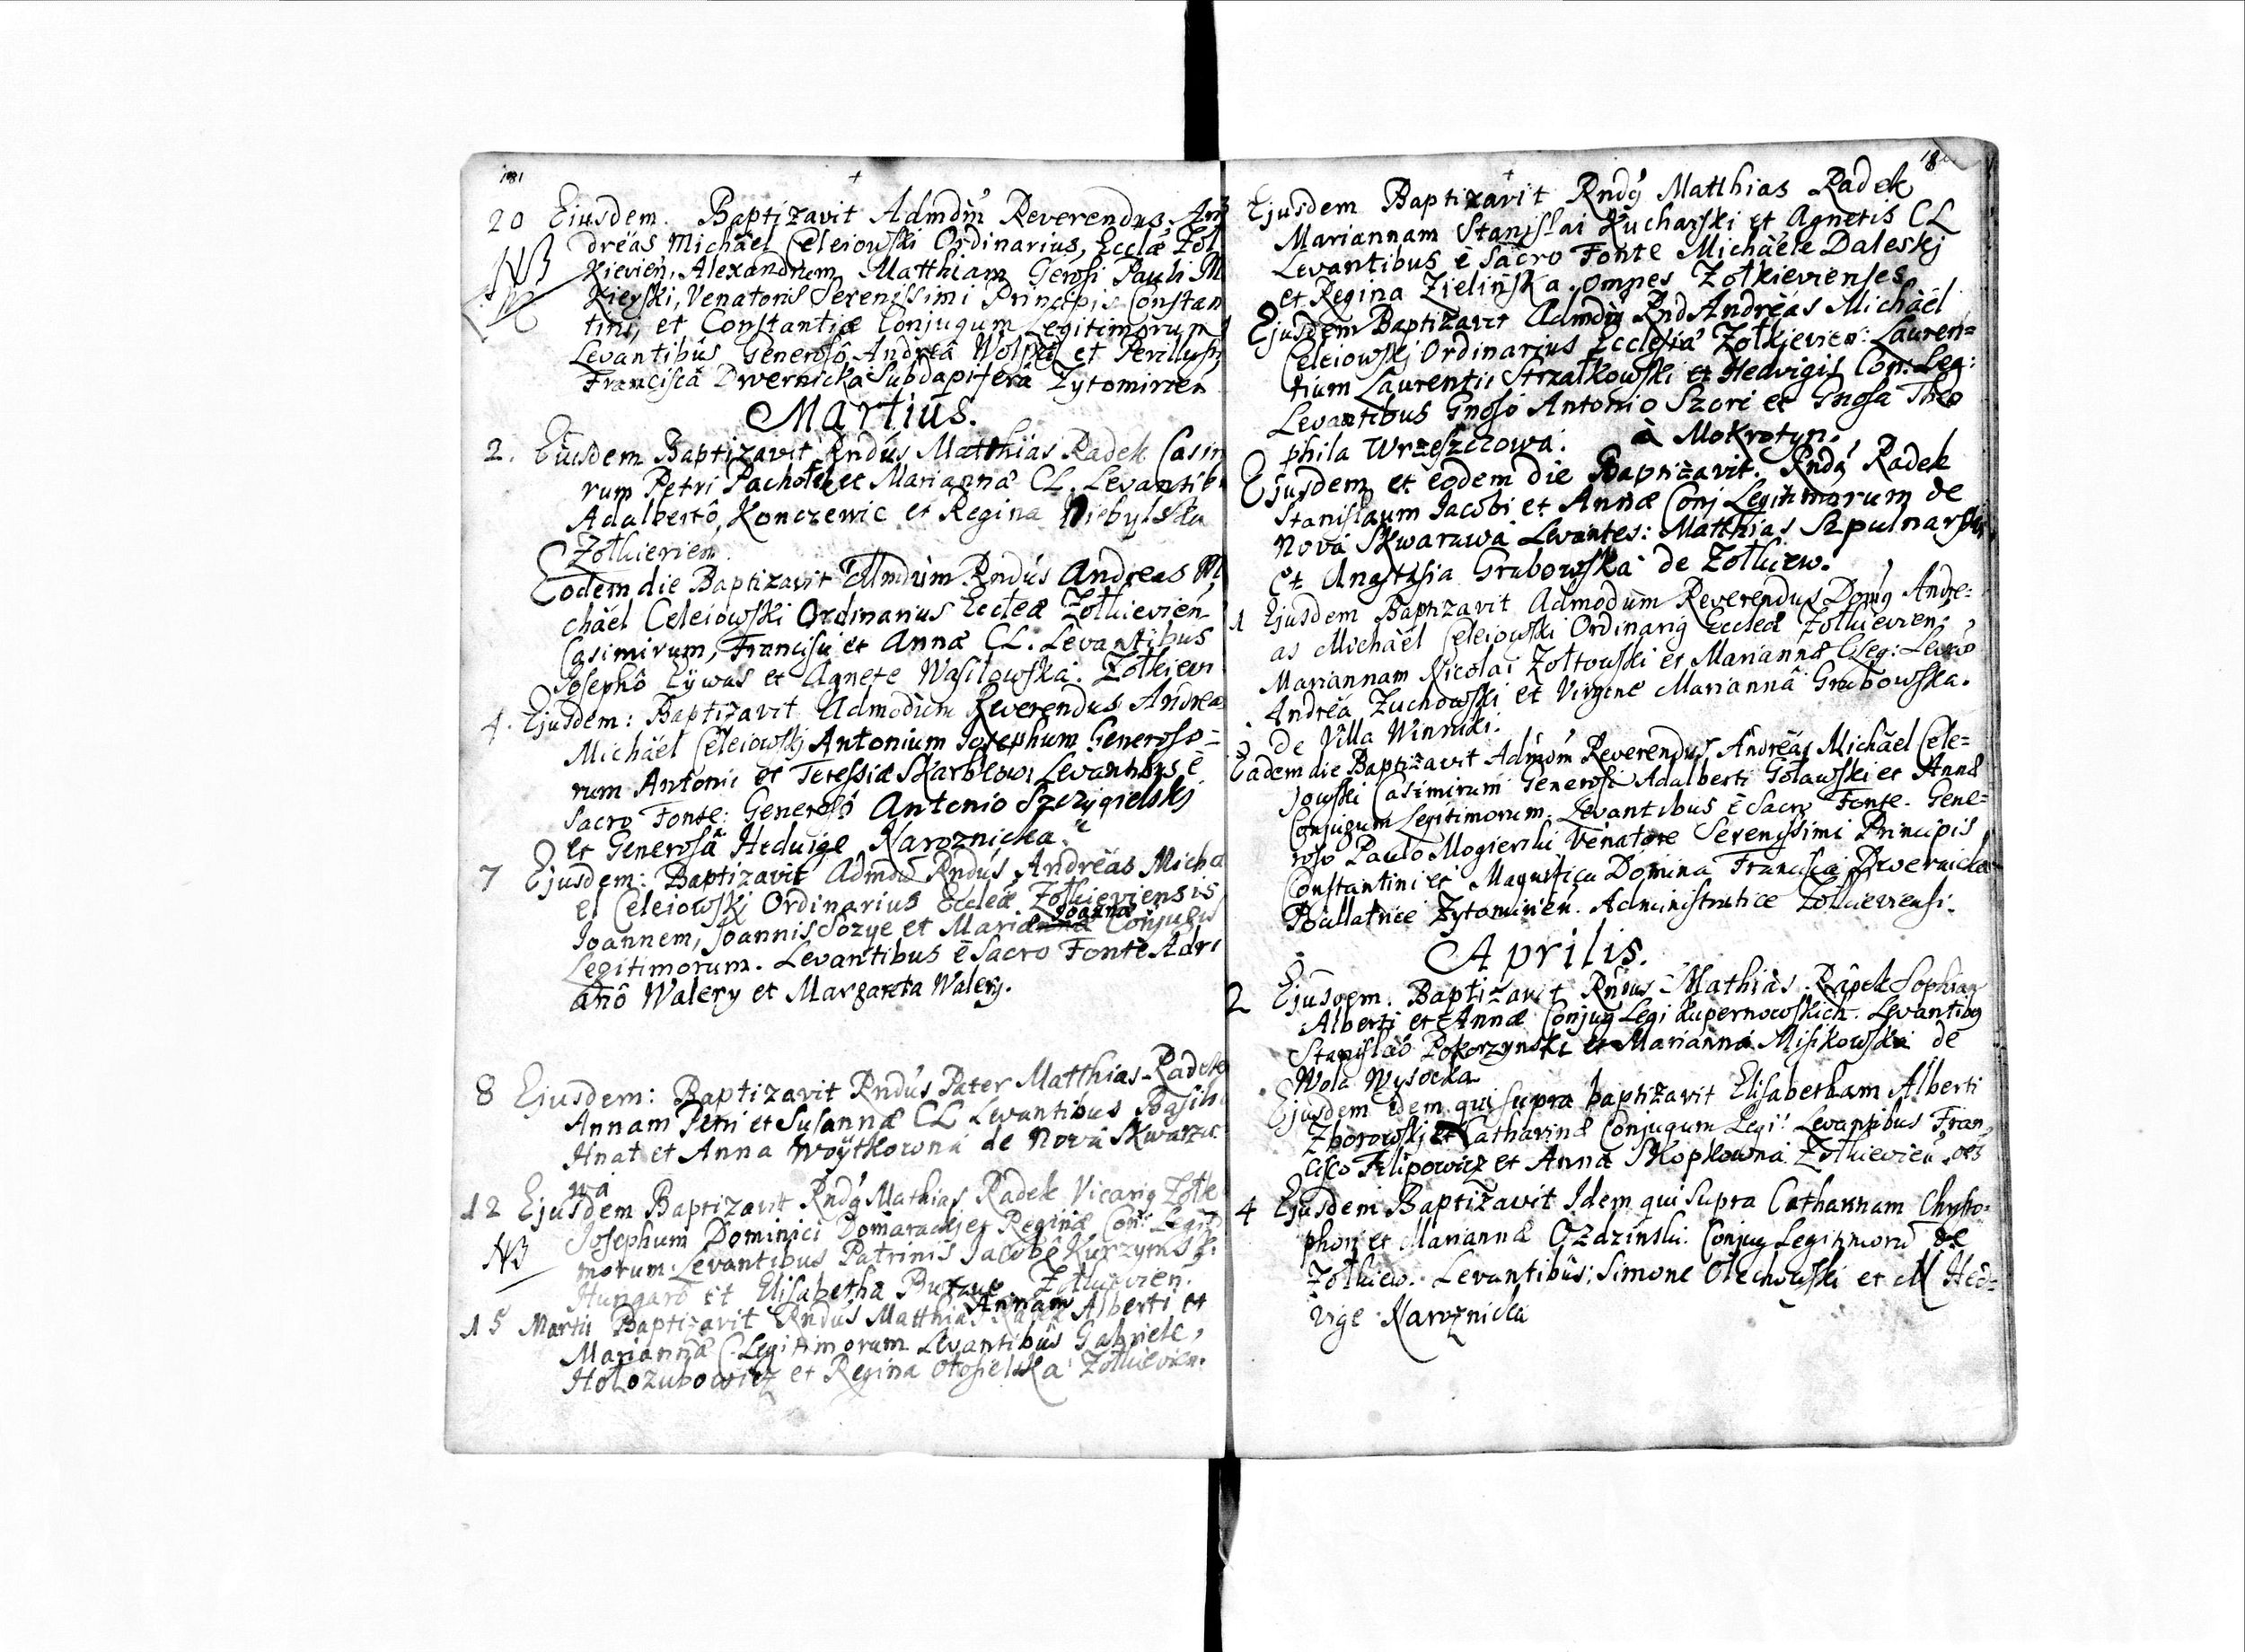 181
20 Ejusdem. Baptizavit Admdm̃ Reverendus An
dreas Michael Celeiowski Ordinarius, Ecclæ Zol
NB kievien, Alexandrum Matthiam Gerosi Pauli M
kierski, Venatoris Serenissimi Principis Constan
tini, et Constantiæ Conjugum Legitimorum
Levantibus Generosô Andreâ Wolski et Perillust
Franciscâ Dwernicka Subdapiferâ Zytomirien
Martius.
2. Ejusdem Baptizavit Rndus Matthias Radek Casim
rum Petri Pachołek et Mariannæ CL. Levantib
Adalbertô Konczewic et Regina Niebylska
Zołkievien.
Eodem die Baptizavit Admdum Rndus Andreas M
chäel Celeiowski Ordinarius Eccleæ Zołkievien
Casimirum, Francisci et Annæ CL. Levantibus
Josephô Lywus et Agnete Wasilowska. Zołkiew
4. Ejusdem: Baptizavit Admodum Reverendus Andrea
Michäel Celeiowskj Antonium Josephum Generoso=
rum Antonii et Teressiæ Skarbkowi Levantibus è
Sacro Fonte: Generosô Antonio Szczygielskj
et Generosâ Heduige Naroznicka.
7 Ejusdem: Baptizavit Admdũ Rndus Andrëas Micha
el Celeiowskj Ordinarius Eccleæ Zołkieviensis
Joannæ
Joannem, Joannis Sozye et Mariannæ Conjugu
Legitimorum. Levantibus è Sacro Fonte Adri
anô Walery et Margareta Walery.
8 Ejusdem: Baptizavit Rndus Pater Matthias Radek
Annam Petri et Susannæ CL Levantibus Basili
Hnat et Anna Woytkowna de Nova Skwarza
wa
12 Ejusdem Baptizavit Rndy Mathias Radek Vicariy Zołk
Josephum Dominici Domaradzj et Reginæ Con: Legiti
NB morum: Levantibus Patrinis Jacobô Kurzyms
Hungarô et Elisabetha Zołkievien.
Annam
15 Martii Baptizavit Rndus Matthias Radek Alberti et
Mariannâ C. Legitimorum Levantibus Gabriele,
Hołozubowicz et Regina Otosielska Zołkievien.
18
Ejusdem Baptizavit Rndy Matthias Radek
Mariannam Stanislai Kucharski et Agnetis CL
Levantibus è Sacro Fonte Michaële Daleskj
et Regina Zielinska. omnes Zołkievienses
Ejusdem Baptizavit Admdm Rnd Andrëas Michäel
Celeiowskj Ordinarius Ecclesiâ Zołkievien: Lauren=
tium Laurentii Strzałkowski et Hedvigis Con: Leg:
Levantibus Gnosô Antonio Szori et Gnosa Theo
phila Wrzeszczowa. à Mokrotyn.
Ejusdem et eodem die Baptizavit. Rndy Radek
Stanislaum Jacobi et Annæ Conj Legitimorum de
Nova Skwarzawa Levantes: Matthias Szpulnarski
et Anastasia Grabowska de Zołkiew.
1 Ejusdem Baptizavit Admodum Reverendus Domy Andre=
as Michäel Celeiowski Ordinariy Eccleæ Zołkievien:
Mariannam Nicolai Zołtowski et Mariannæ C Leg: Levan
Andrëa Zuchowski et Virgine Mariannâ Grabowska.
De Villa Winniki.
Eadem die Baptizavit Admdm Reverendus Andrëas Michäel Cele=
jowski Casimirum Generosi Adalberti Goławski et Annæ
Conjugum Legitimorum. Levantibus è Sacro Fonte. Gene=
roso Paulo Mogierski Venatore Serenissimi Principis
Constantini et Magnifica Domina Francisca Dwernicka
Zytomirien. Administratice Zołkieviensi.
Aprilis.
2 Ejusdem. Baptizavit Rndus Mathias Radek Sophiam
Alberti et Annæ Conjug Legi Kupernowskich. Levantiby
Stanislaô Pokorzynski et Marianna Misikowska de
Wola Wysocka
Ejusdem idem qui supra baptizavit Elisabetham Alberti
Zborowskj et Catharinæ Conjugum Legi: Levantibus Fran
cisco Filipowicz et Anna Skopkowna Zołkievien. oes
4 Ejusdem Baptizavit Idem qui Supra Catharinam Chrysto=
phori et Mariannæ Ozdzinski. Conjug Legitimorũ de
Zołkiew. Levantibus: Simone Olechowski et M Hed=
vige Naroznicka